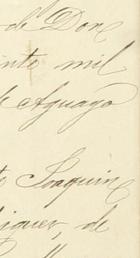 de Don
inte mil
de Aguayo
Joaquin
iguez, de